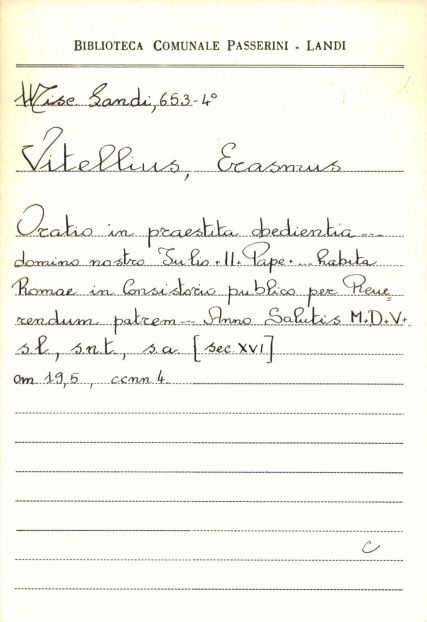 BIBLIOTECA COMUNALE PASSERINI - LANDI
Misc Landi, 653-4°
Vitellius, Erasmus
Oratio in praestita obedientia ....
domino nostro Iulio . II . Pape . ... habita
Romae in Consistorio publico per Reue=
rendum patrem ... Anno Salutis M.D.V.
s.l., s.n.t., s.a. [sec. XVI]
cm 19,5, ccnn 4
C